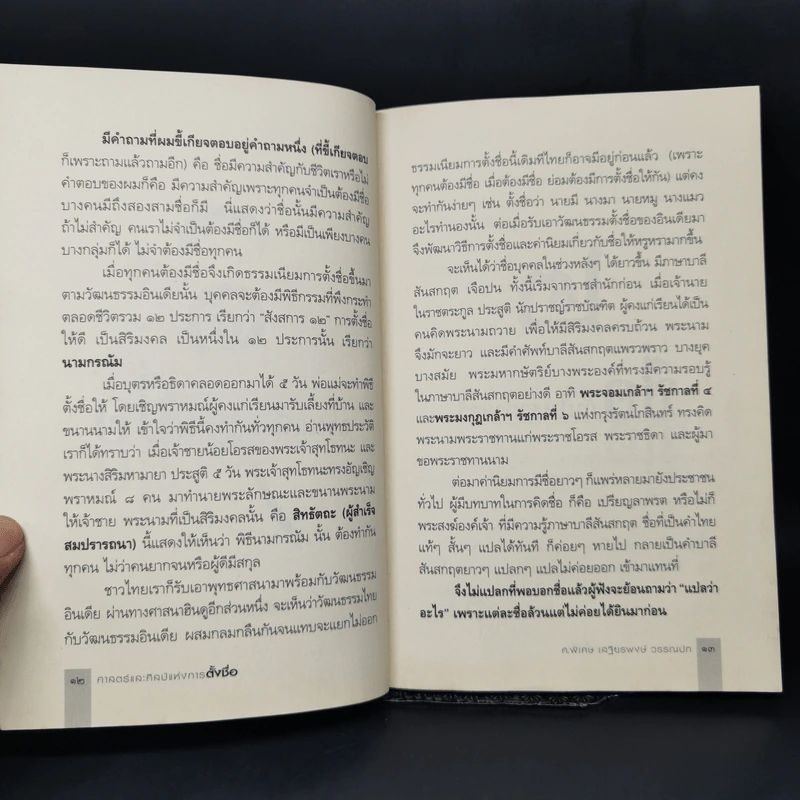 มีคำถามที่ผมขี้เกียจตอบอยู่คำถามหนึ่ง (ที่ขี้เกียจตอบ
ก็เพราะถามแล้วถามอีก) คือ ชื่อมีความสำคัญกับชีวิตเราหรือไม่
คำตอบของผมก็คือ มีความสำคัญเพราะทุกคนจำเป็นต้องมีชื่อ
บางคนมีถึงสองสามชื่อก็มี นี่แสดงว่าชื่อนั้นมีความสำคัญ
ถ้าไม่สำคัญ คนเราไม่จำเป็นต้องมีชื่อก็ได้ หรือมีเป็นเพียงบางคน
บางกลุ่มก็ได้ ไม่จำต้องมีชื่อทุกคน
เมื่อทุกคนต้องมีชื่อจึงเกิดธรรมเนียมการตั้งชื่อขึ้นมา
ตามวัฒนธรรมอินเดียนั้น บุคคลจะต้องมีพิธีกรรมที่พึงกระทำ
ตลอดชีวิตรวม ๑๒ ประการ เรียกว่า "สังสการ ๑๒" การตั้งชื่อ
ให้ดี เป็นสิริมงคล เป็นหนึ่งใน ๑๒ ประการนั้น เรียกว่า
นามกรณัม
เมื่อบุตรหรือธิดาคลอดออกมาได้ ๕ วัน พ่อแม่จะทำพิธี
ตั้งชื่อให้ โดยเชิญพราหมณ์ผู้คงแก่เรียนมารับเลี้ยงที่บ้าน และ
ขนานนามให้ เข้าใจว่าพิธีนี้คงทำกันทั่วทุกคน อ่านพุทธประวัติ
เราก็ได้ทราบว่า เมื่อเจ้าชายน้อยโอรสของพระเจ้าสุทโธทนะ และ
พระนางสิริมหามายา ประสูติ ๕ วัน พระเจ้าสุทโธทนะทรงอัญเชิญ
พราหมณ์ ๘ คน มาทำนายพระลักษณะและขนานพระนาม
ให้เจ้าชาย พระนามที่เป็นสิริมงคลนั้น คือ สิทธัตถะ (ผู้สำเร็จ
สมปรารถนา) นี้แสดงให้เห็นว่า พิธีนามกรณัม นั้น ต้องทำกัน
ทุกคน ไม่ว่าคนยากจนหรือผู้ดีมีสกุล
ชาวไทยเราก็รับเอาพุทธศาสนามาพร้อมกับวัฒนธรรม
อินเดีย ผ่านทางศาสนาฮินดูอีกส่วนหนึ่ง จะเห็นว่าวัฒนธรรมไทย
กับวัฒนธรรมอินเดีย ผสมกลมกลืนกันจนแทบจะแยกไม่ออก
๑๒ ศาสตร์และศิลป์แห่งการตั้งชื่อ
ธรรมเนียมการตั้งชื่อนี้เดิมทีไทยก็อาจมีอยู่ก่อนแล้ว (เพราะ
ทุกคนต้องมีชื่อ เมื่อต้องมีชื่อ ย่อมต้องมีการตั้งชื่อให้กัน) แต่คง
จะทำกันง่ายๆ เช่น ตั้งชื่อว่า นายมี นางมา นายหมู นางแมว
อะไรทำนองนั้น ต่อเมื่อรับเอาวัฒนธรรมตั้งชื่อของอินเดียมา
จึงพัฒนาวิธีการตั้งชื่อและค่านิยมเกี่ยวกับชื่อให้หรูหรามากขึ้น
จะเห็นได้ว่าชื่อบุคคลในช่วงหลังๆ ได้ยาวขึ้น มีภาษาบาลี
สันสกฤต เจือปน ทั้งนี้เริ่มจากราชสำนักก่อน เมื่อเจ้านาย
ในราชตระกูล ประสูติ นักปราชญ์ราชบัณฑิต ผู้คงแก่เรียนได้เป็น
คนคิดพระนามถวาย เพื่อให้มีสิริมงคลครบถ้วน พระนาม
จึงมักจะยาว และมีคำศัพท์บาลีสันสกฤตแพรวพราว บางยุค
บางสมัย พระมหากษัตริย์บางพระองค์ที่ทรงมีความรอบรู้
ในภาษาบาลีสันสกฤตอย่างดี อาทิ พระจอมเกล้าฯ รัชกาลที่ ๔
และพระมงกุฎเกล้าฯ รัชกาลที่ ๖ แห่งกรุงรัตนโกสินทร์ ทรงคิด
พระนามพระราชทานแก่พระราชโอรส พระราชธิดา และผู้มา
ขอพระราชทานนาม
ต่อมาค่านิยมการมีชื่อยาวๆ ก็แพร่หลายมายังประชาชน
ทั่วไป ผู้มีบทบาทในการคิดชื่อ ก็คือ เปรียญลาพรต หรือไม่ก็
พระสงฆ์องค์เจ้า ที่มีความรู้ภาษาบาลีสันสกฤต ชื่อที่เป็นคำไทย
แท้ๆ สั้นๆ แปลได้ทันที ก็ค่อยๆ หายไป กลายเป็นคำบาลี
สันสกฤตยาวๆ แปลกๆ แปลไม่ค่อยออก เข้ามาแทนที่
จึงไม่แปลกที่พอบอกชื่อแล้วผู้ฟังจะย้อนถามว่า "แปลว่า
อะไร" เพราะแต่ละชื่อล้วนแต่ไม่ค่อยได้ยินมาก่อน
ศ.พิเศษ เสฐียรพงษ์ วรรณปก ๑๓